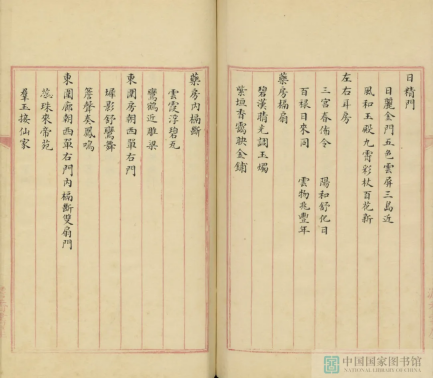 日精門
日麗金門五色雲屏三島近
風和玉殿九霄彩杖百花新
左右耳房
三宮春佈令　陽和舒化日
百祿日來同　雲物兆豐年
藥房槅扇
碧漢晴光調玉燭
紫垣青靄映金鋪
藥房內槅斷
雲霞浮碧瓦
鸞鶴近雕梁
東圍房朝西單右門
墀影舒鸞舞
簷聲奏鳳鳴
東圍廊朝西單右門內槅斷雙扇門
蕊珠來帝苑
羣玉接仙家
中国国家图书馆
NATIONAL LIBRARY OF CHINA